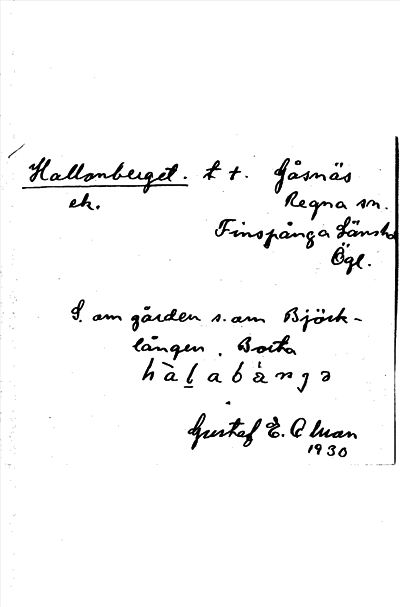 Hallonberget. t t. Gåsnäs
ek. Regna sn.
Finspånga Länsh
Ögl.
S. om gården s. om Björk-
lången. Borta
Gustaf E. Alman
1930